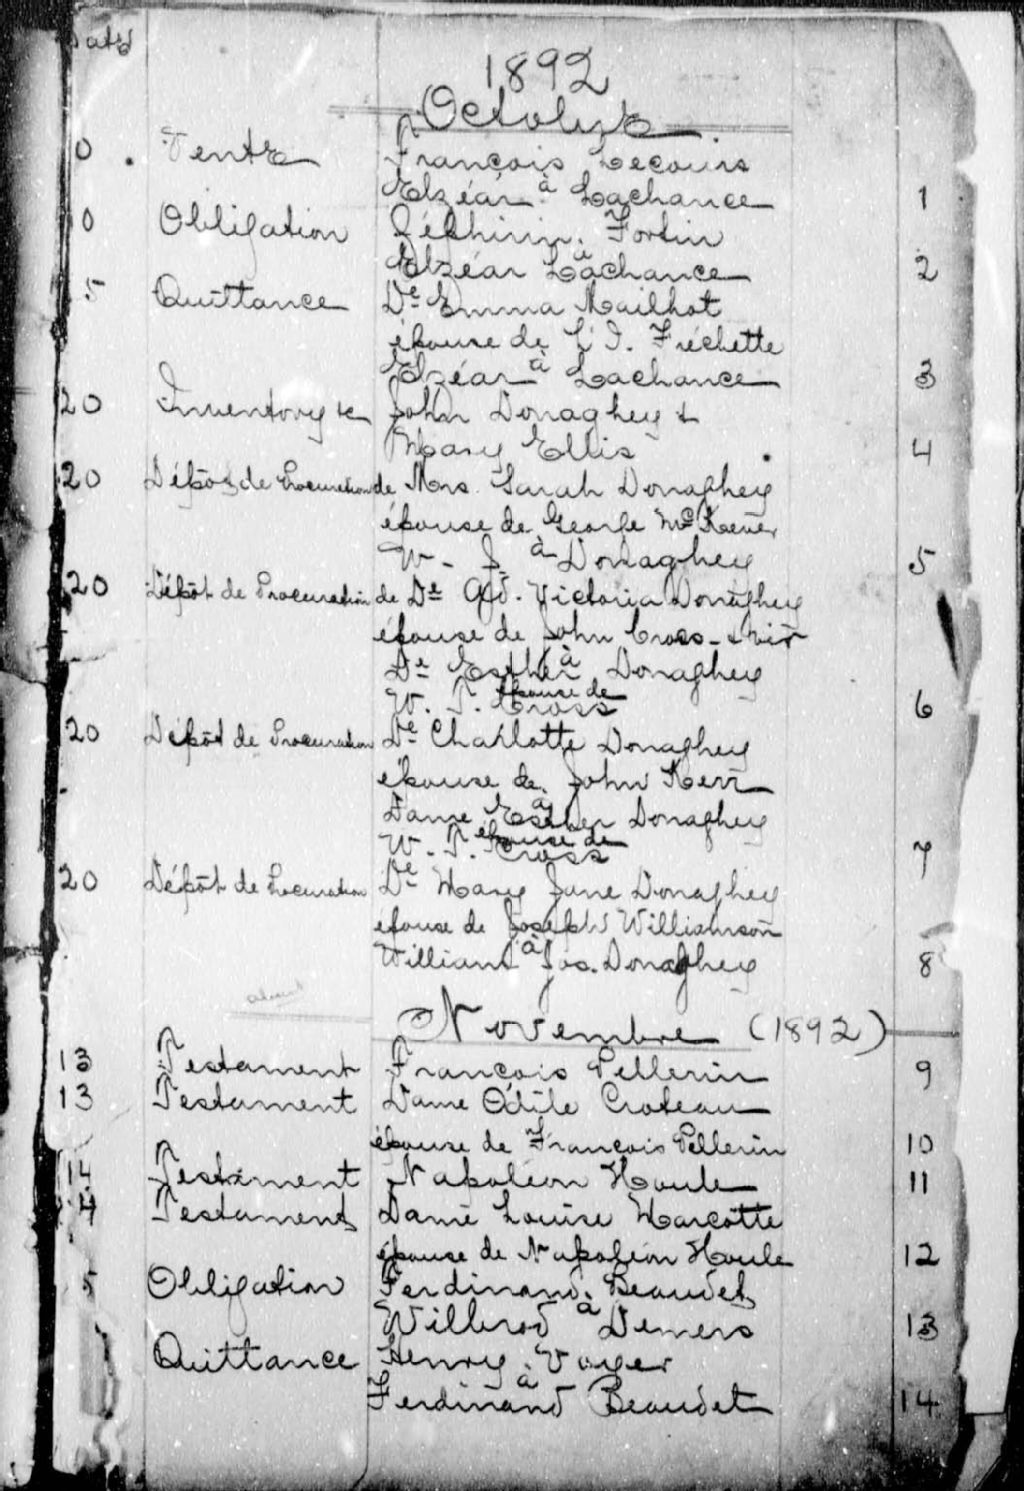 Date
1892
Octobre
0 Vente François Lecours
à
Elzéar Lachance 1
0 Obligation Zéphirin Fortin
à
Elzéar Lachance 2
5 Quittance De Emma Mailhot
épouse de L. I. Fréchette
à
Elzéar Lachance 3
20 Inventory &c John Donaghey &
Mary Ellis 4
20 Dépôt de Procuration de Mrs. Sarah Donaghey
épouse de George McKeever
à
W. J. Donaghey 5
20 Dépôt de Procuration de De Victoria Donaghey
épouse de John Cross & vir
à
De Esther Donaghey
épouse de
W. T. Cross 6
20 Dépôt de Procuration De Charlotte Donaghey
épouse de John Kerr
à
Dame Esther Donaghey
épouse de
W. T. Cross 7
20 Dépôt de Procuration De Mary Jane Donaghey
épouse de Joseph Williamson
à
William Jos. Donaghey 8
Novembre (1892)
13 Testament François Pellerin 9
13 Testament Dame Odile Croteau
épouse de François Pellerin 10
14 Testament Napoléon Houle 11
4 Testament Dame Louise Marcotte
épouse de Napoléon Houle 12
5 Obligation Ferdinand Beaudet
à
Wilbrod Demers 13
Quittance Henry Voyer
à
Ferdinand Beaudet 14